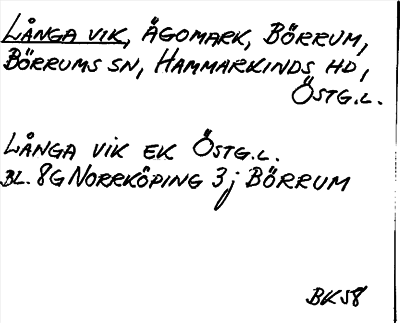 LÅNGA VIK, ÄGOMARK, BÖRRUM,
BÖRRUMS SN, HAMMARKINDS HD,
ÖSTG.L.
LÅNGA VIK EK ÖSTG.L.
BL. 8G NORRKÖPING 3j BÖRRUM
BK58